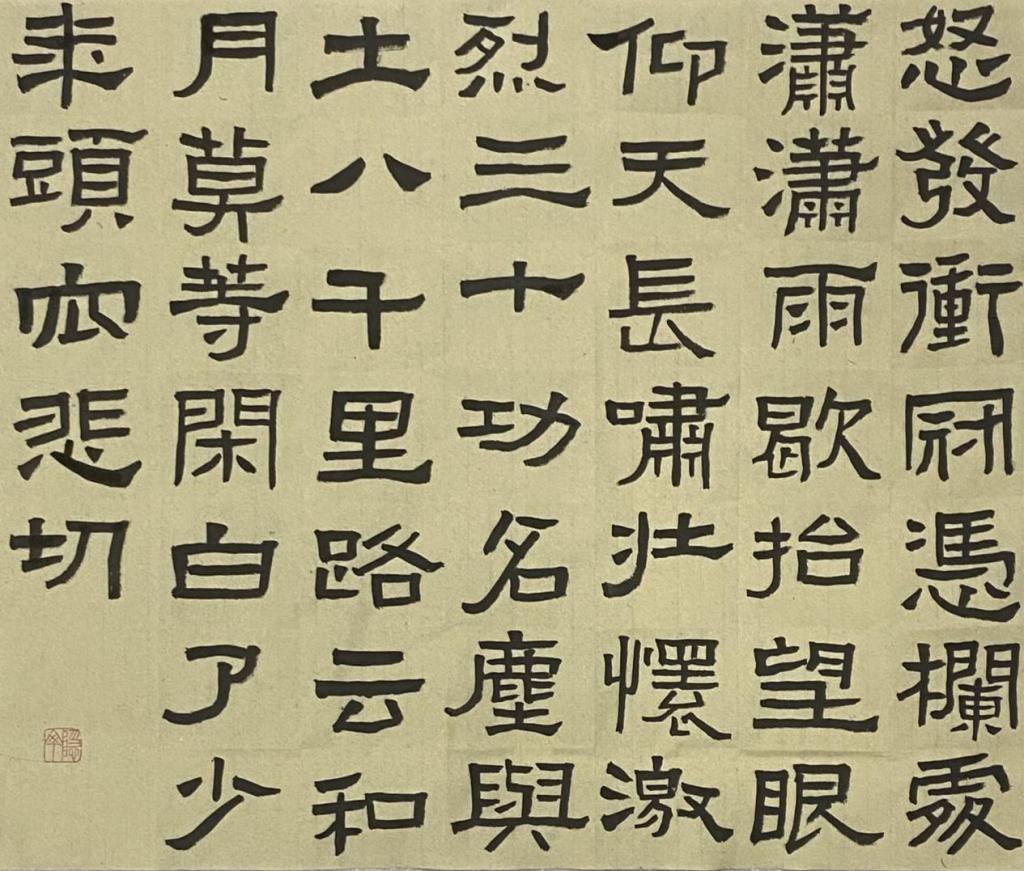 怒發衝冠憑欄處
瀟瀟雨歇抬望眼
仰天長嘯壯懷激
烈三十功名塵與
土八千里路云和
月莫等閑白了少
年頭空悲切